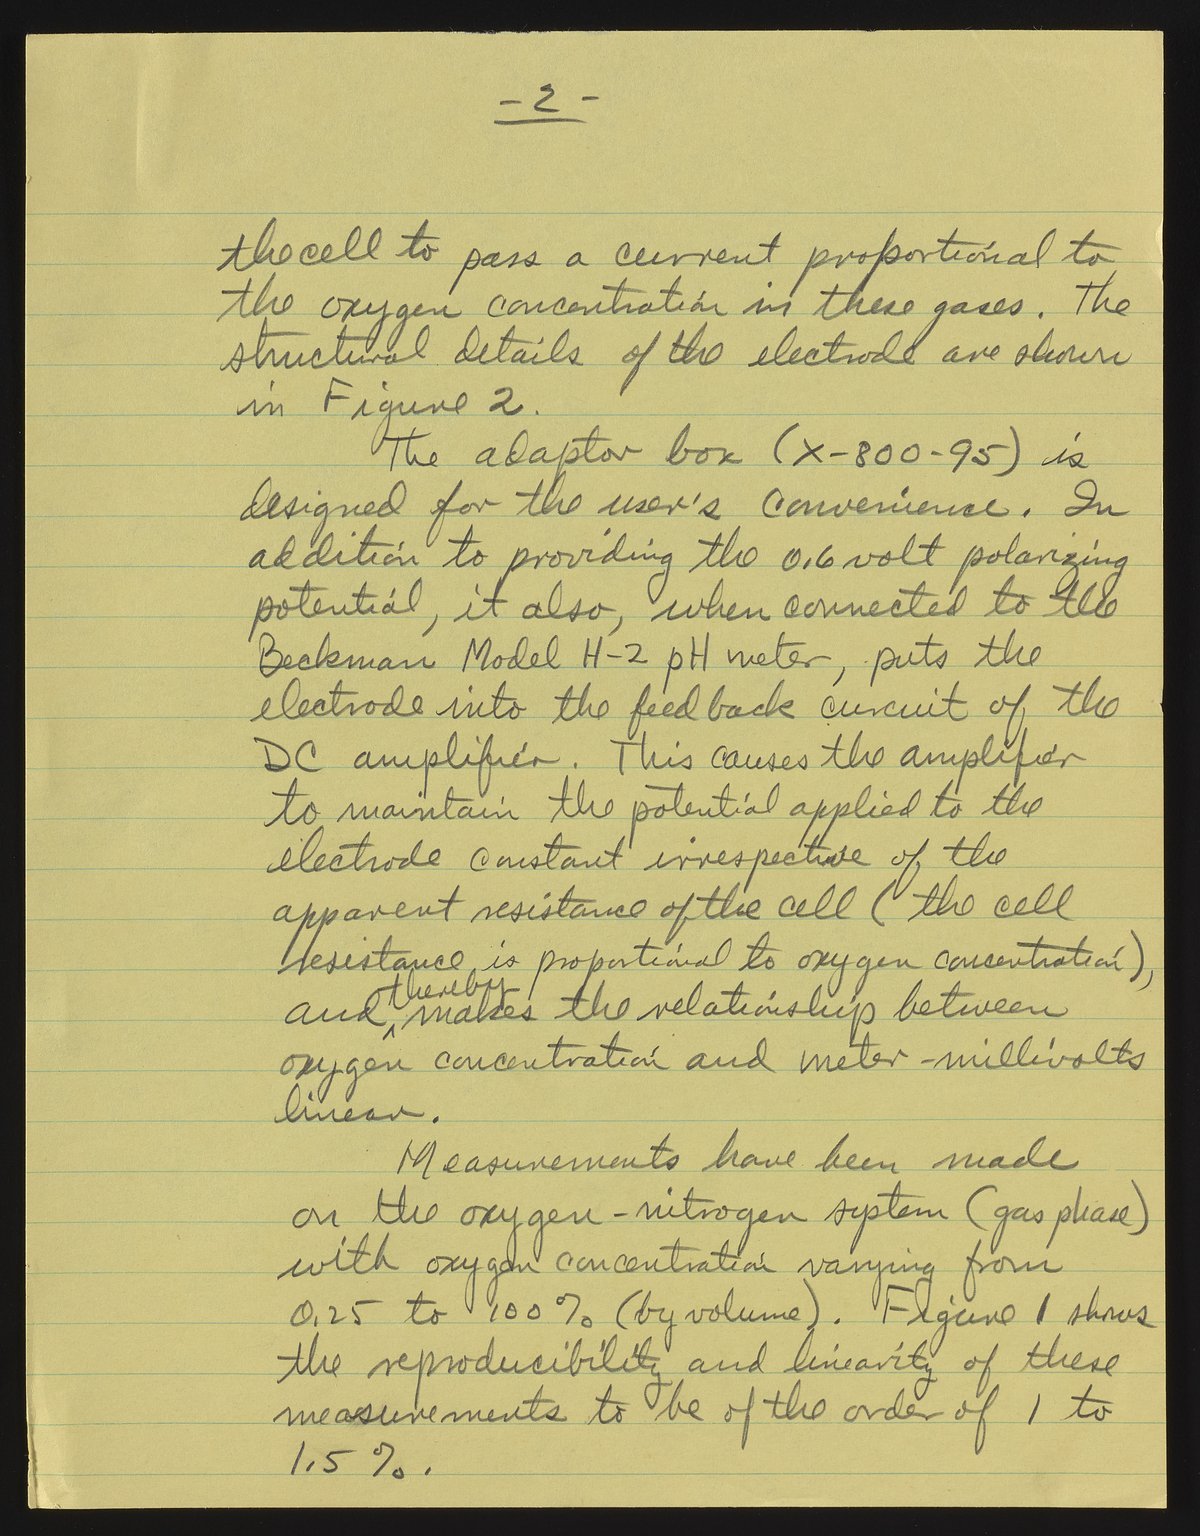 - 2 -
the cell to pass a current proportional to
the oxygen concentration in these gases. The
structural details of the electrode are shown
in Figure 2.
The adaptor box (X-800-95) is
designed for the user's convenience. In
addition to providing the 0.6 volt polarizing
potential, it also, when connected to the
Beckman Model H-2 pH meter, puts the
electrode into the feedback curcuit of the
DC amplifier. This causes the amplifier
to maintain the potential applied to the
electrode constant irrespective of the
apparent resistance of the cell (the cell
resistance is proportional to oxygen concentration),
and thereby makes the relationship between
oxygen concentration and meter-millivolts
linear.
Measurements have been made
on the oxygen-nitrogen system (gas phase)
with oxygen concentration varying from
0.25 to 100% (by volume). Figure 1 shows
the reproducibility and linearity of these
measurements to be of the order of 1 to
1.5%.